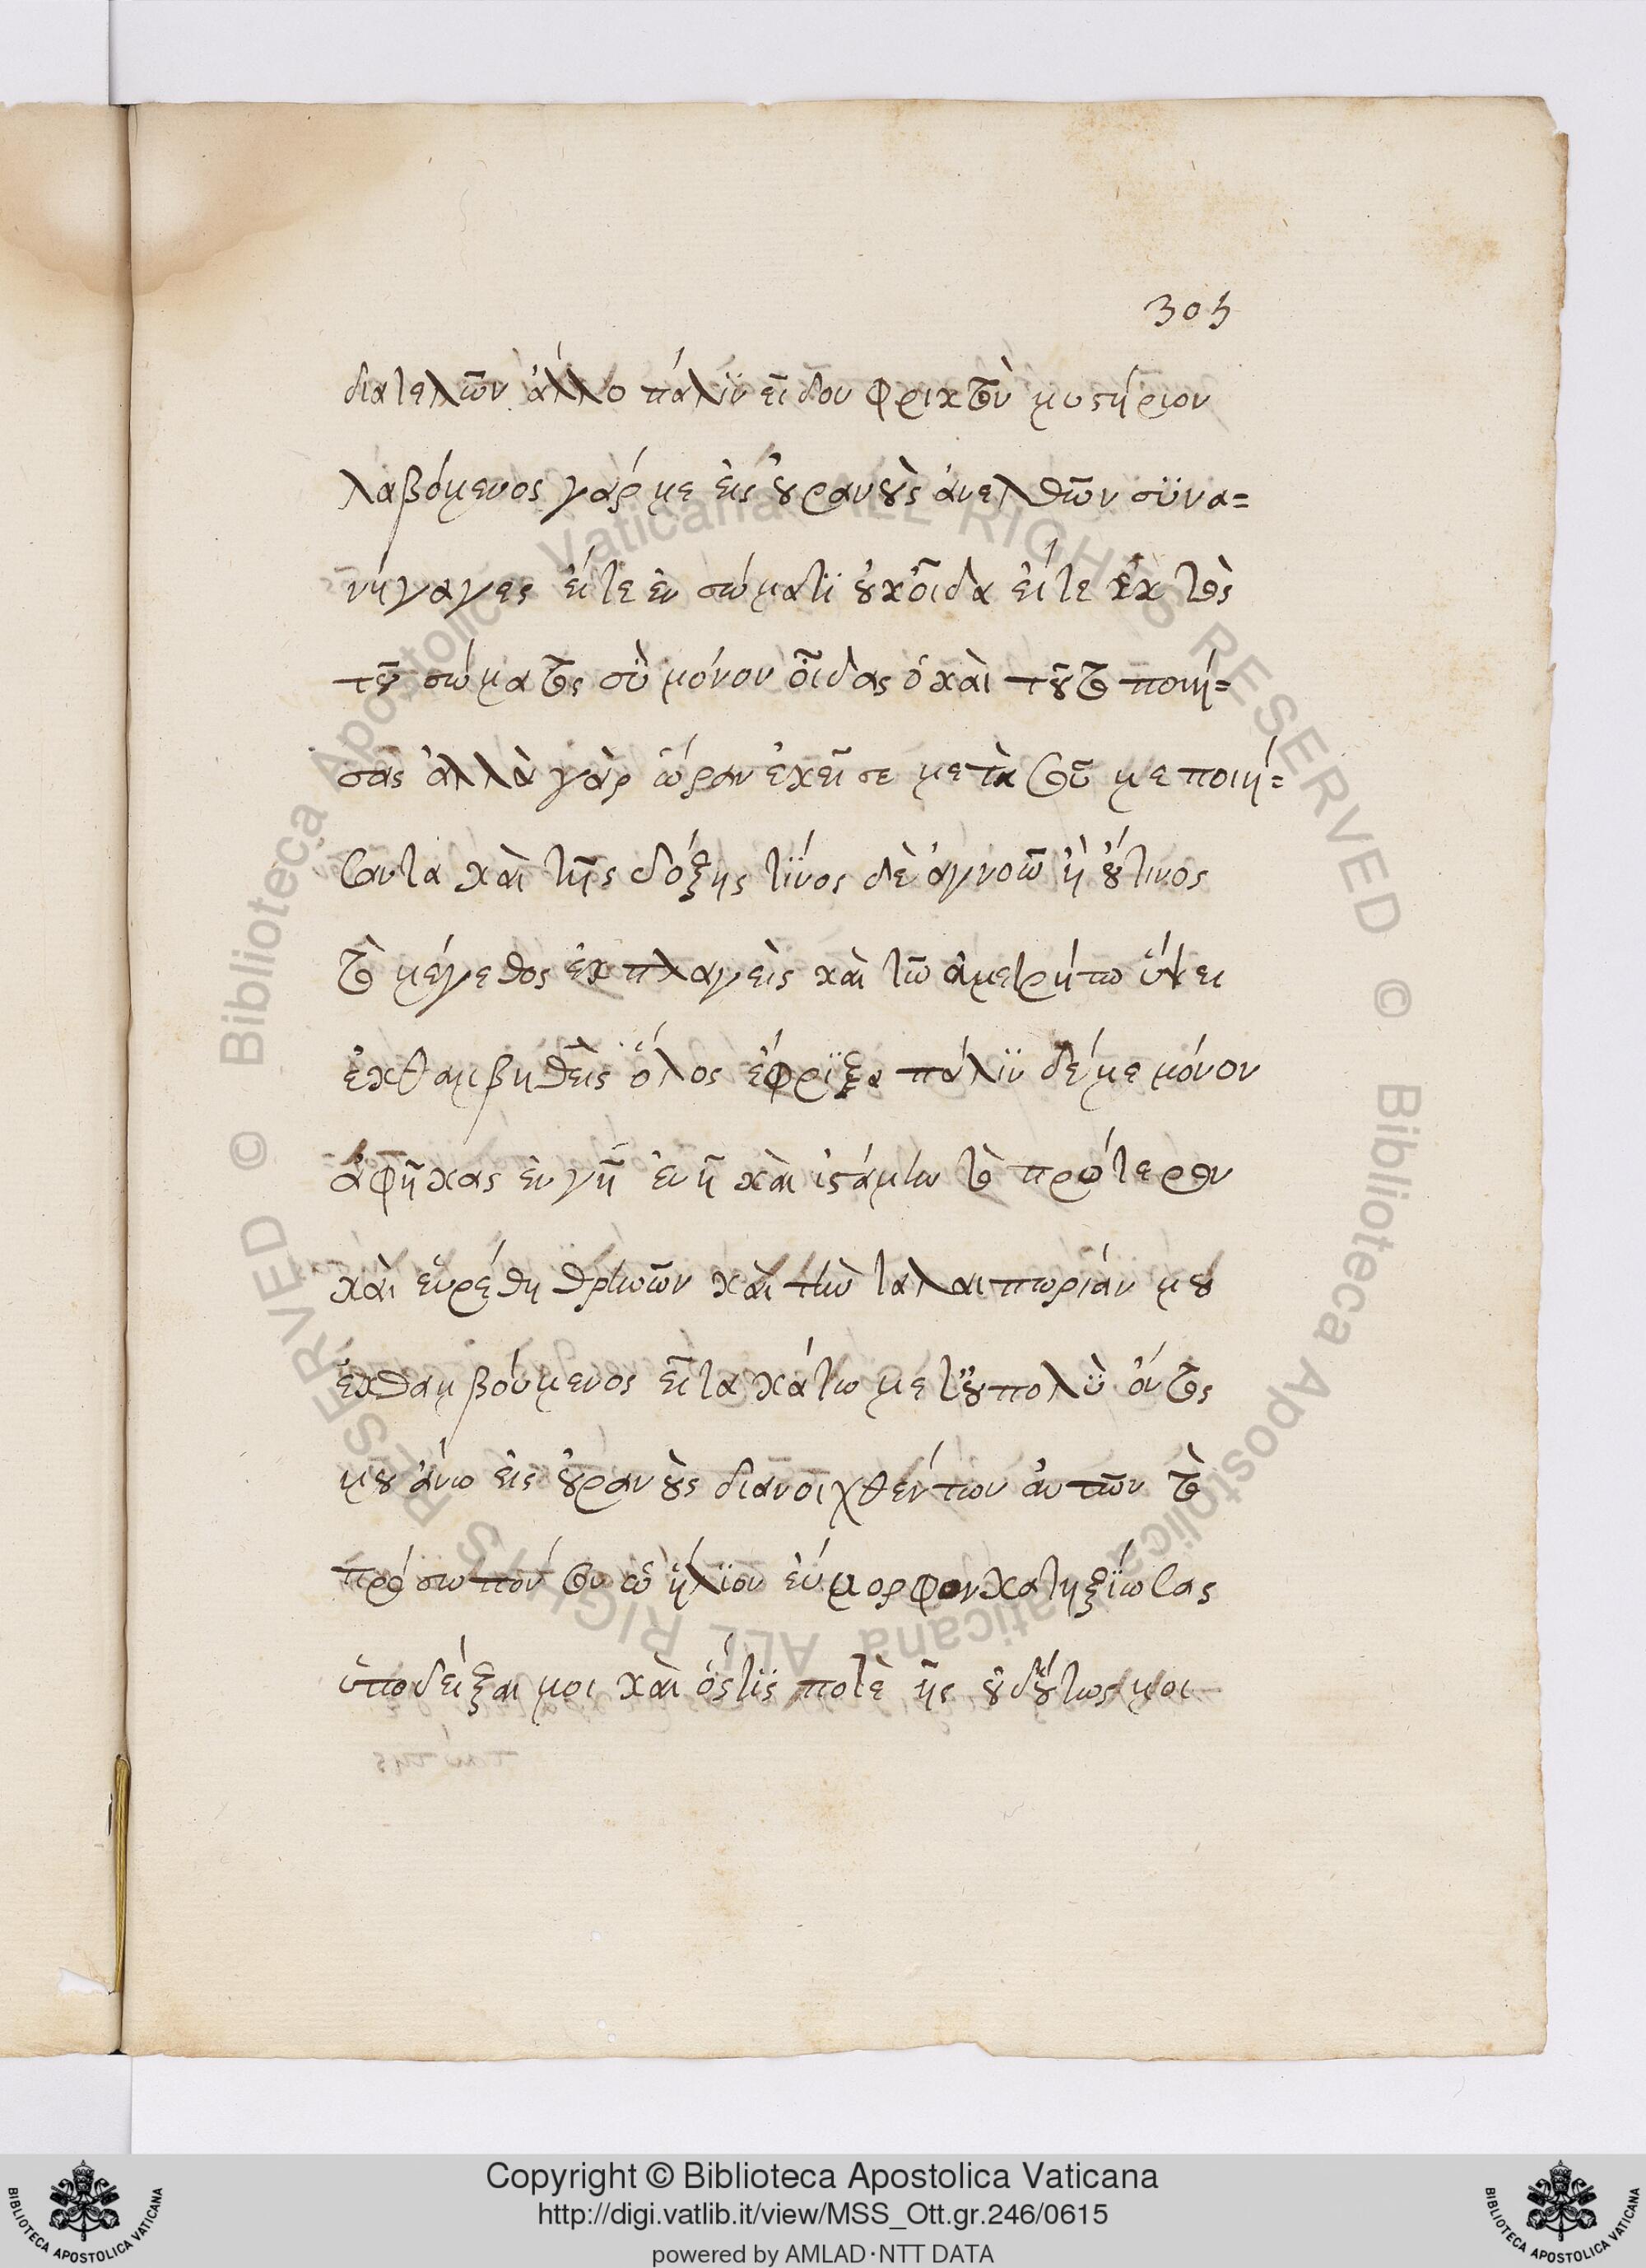 303
διατελῶν ἄλλο πάλϊν εἶδον φρικτὸν μυστήριον
λαβόμενος γάρ με εἰς οὐρανοὺς ἀνελθῶν σϋνα=
νήγαγες εἴτε ἐν σώματϊ οὐκοἶδα εἴτε ἐκτὸς
τοῦ σώματος σὺ μόνον οἶδας ὁ καὶ τοῦτο ποιή=
σας ἀλλὰ γὰρ ὥραν ἐκεῖσε μετὰ σοῦ με ποιή=
σαντα καὶ τῆς δόξης τίνος δὲ ἀγνοῶ ἢ οὕτινος
τὸ μέγεθος ἐκπλαγεὶς καὶ τῶ ἀμετρήτω ὕψει
ἐκθαμβηθεὶς ὅλος ἔφρϊξα πάλϊν δέ με μόνον
ἀφῆκας ἐν γῆ ἐν ἧ καὶ ἱστάμην τὸ πρότερον
καὶ εὑρέθη θρηνῶν καὶ τὴν ταλαιπωριάν μου
ἐκθαμβούμενος εἶτα κάτω μετ'οὐπολὺ ὄντος
μου ἄνω εἰς οὐρανοὺς διανοιχθέντων αὐτῶν τὸ
πρόσωπόν σου ὡ ἥλϊον εὔμορφον κατηξϊωσας
ὑποδεῖξαι μοι καὶ ὅστϊς ποτὲ ἦς οὐδ'οὕτως μοι
Copyright © Biblioteca Apostolica Vaticana
http://digi.vatlib.it/view/MSS_Ott.gr.246/0615
powered by AMLAD·NTT DATA
BIBLIOTECA APOSTOLICA VATICANA
BIBLIOTECA APOSTOLICA VATICANA
© Biblioteca Apostolica Vaticana ALL RIGHTS RESERVED © Biblioteca Apostolica Vaticana ALL RIGHTS RESERVED